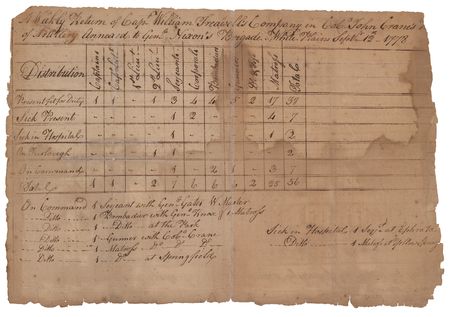 A Weekly Return of Capt William Treadwells Company in Col. John Crane's
of Artillery Annexed to Genl Nixon's Brigade White Plains Septr 12th 1778
Distribution Captains Capt Lieut 1st Lieut 2d Lieut Sergeants Corporals Bombardiers Gunners Matross Total
Present fit for Duty 1 1 - 1 3 4 4 5 2 17
Sick Present - - - - - 1 2 - - - 4 7
Sick in Hospital - - - - 1 - - 1 2
On Furlough - - - 1 1 - - 2
On Command - - - - 1 - 2 1 - 3 7
Total 1 1 - 2 7 6 6 2 25 56
On Command 1 Sergeant with Genl Gates W Master
Ditto 1 Bombadier with Genl Knox 1 Matross
Ditto 1 Ditto at the Park
Ditto 1 Gunner with Colo Crane
Ditto 1 Matross Do Do Do
Ditto 1 Do at Springfield
Sick in Hospital 1 Sergt at
Ditto 1 Matross at